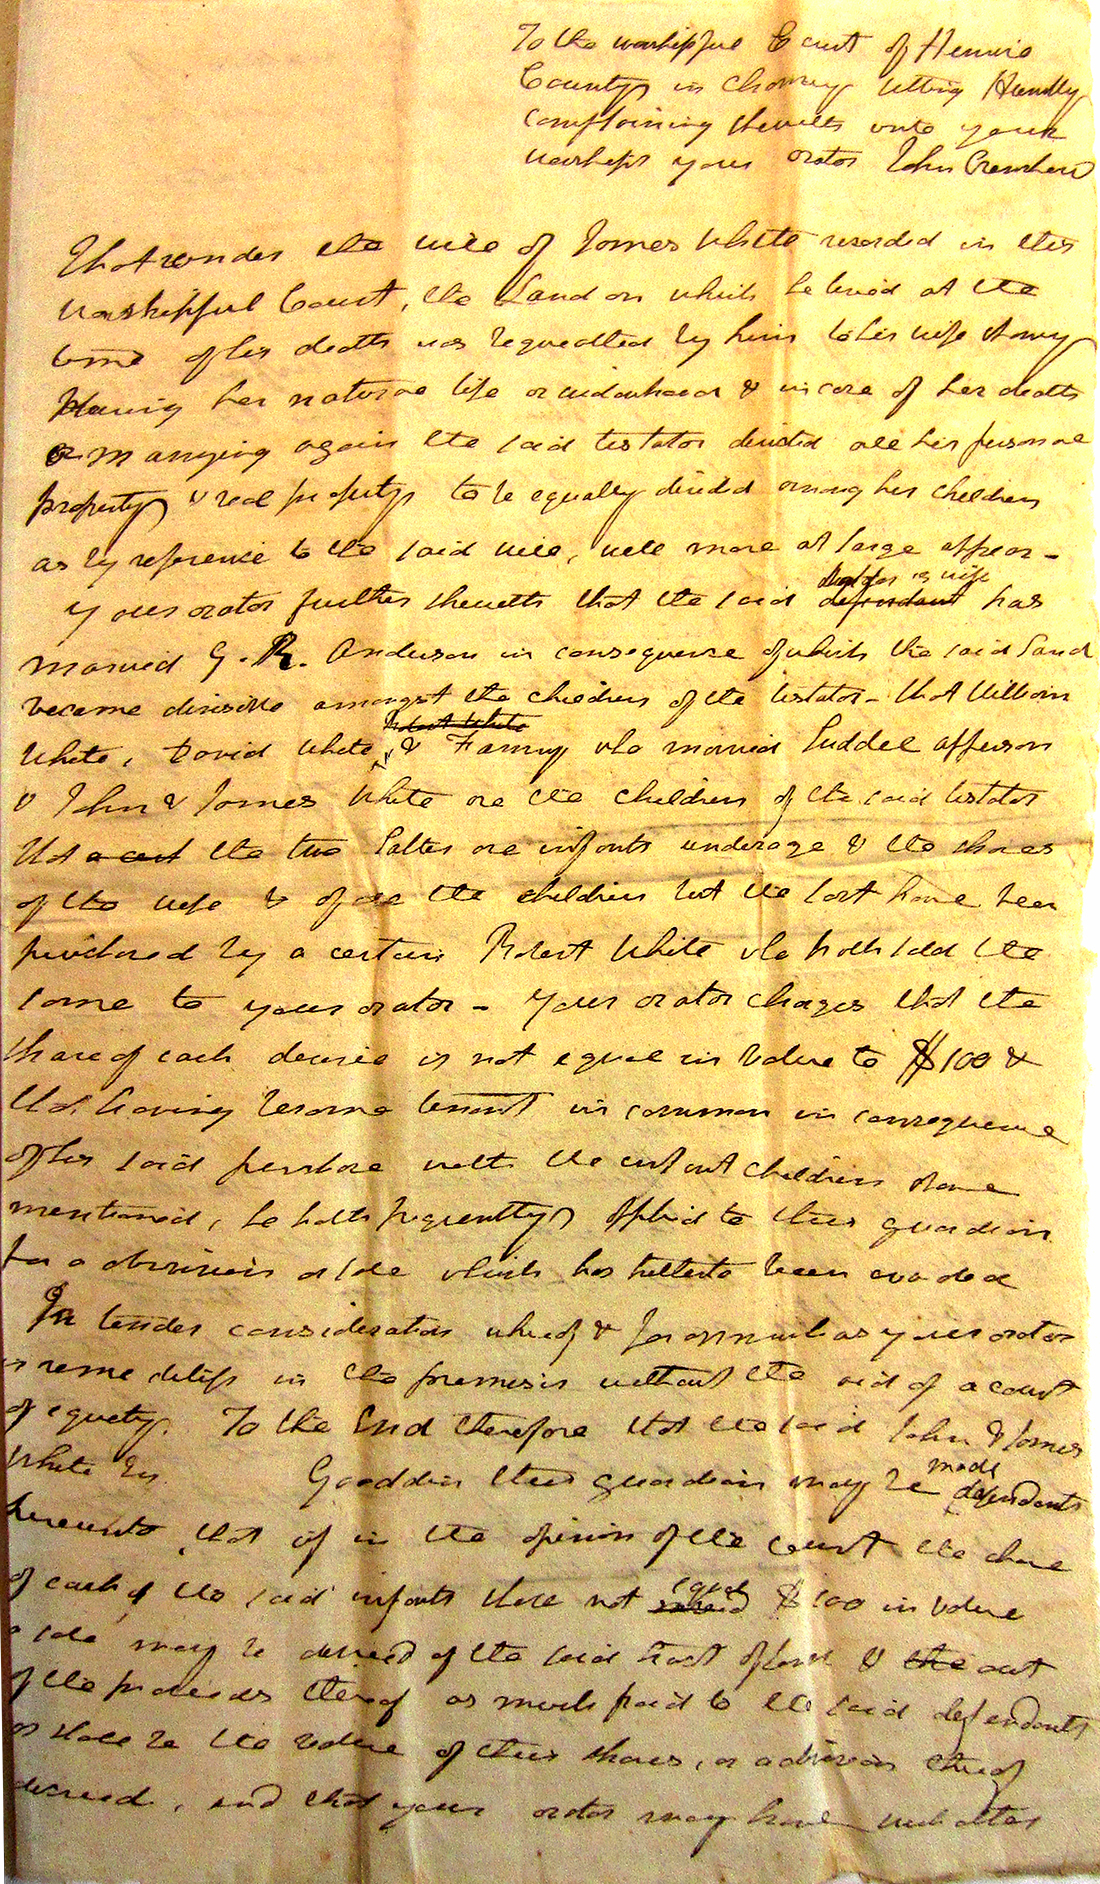 To the worshipful Court of Henrico
County in chancery sitting Humbly
complaining sheweth unto your
worships your orator John Crenshaw
That under the will of James White recorded in this
worshipful Court, the Land on which he lived at the
time of his death was bequeathed by him to his wife
During her natural life or widowhood & in case of her death
or marrying again the said testator devised all his personal
property & real property to be equally divided among his children
as by reference to the said will, will more at large appear -
your orator further sheweth that the said defendant testator's wife has
married G. R. Anderson in consequence of which the said Land
became divisible amongst the children of the testator - that William
White, David White, Robert White & Fanny who married Liddel Apperson
& John & James White are the children of the said testator
that the two latter are infants underage & the shares
of the wife & of all the children but the last have been
purchased by a certain Robert White who hath sold the
same to your orator - your orator charges that the
share of each devisee is not equal in value to $100 &
that having become tenant in common in consequence
of his said purchase with the infant children above
mentioned, he hath frequently applied to their guardian
for a division or sale which has hitherto been evaded
In tender consideration whereof & for as much as your orator
is remediless in the premises without the aid of a court
of equity. To the End therefore that the said John & James
White by Gooddin their guardian may be made defendants
hereunto that if in the opinion of the court the share
of each of the said infants shall not equal $100 in value
a sale may be decreed of the said tract of land & the out
of the proceeds thereof as much paid to the said defendants
as shall be the value of their shares, or a division thereof
decreed, and that your orator may have such other